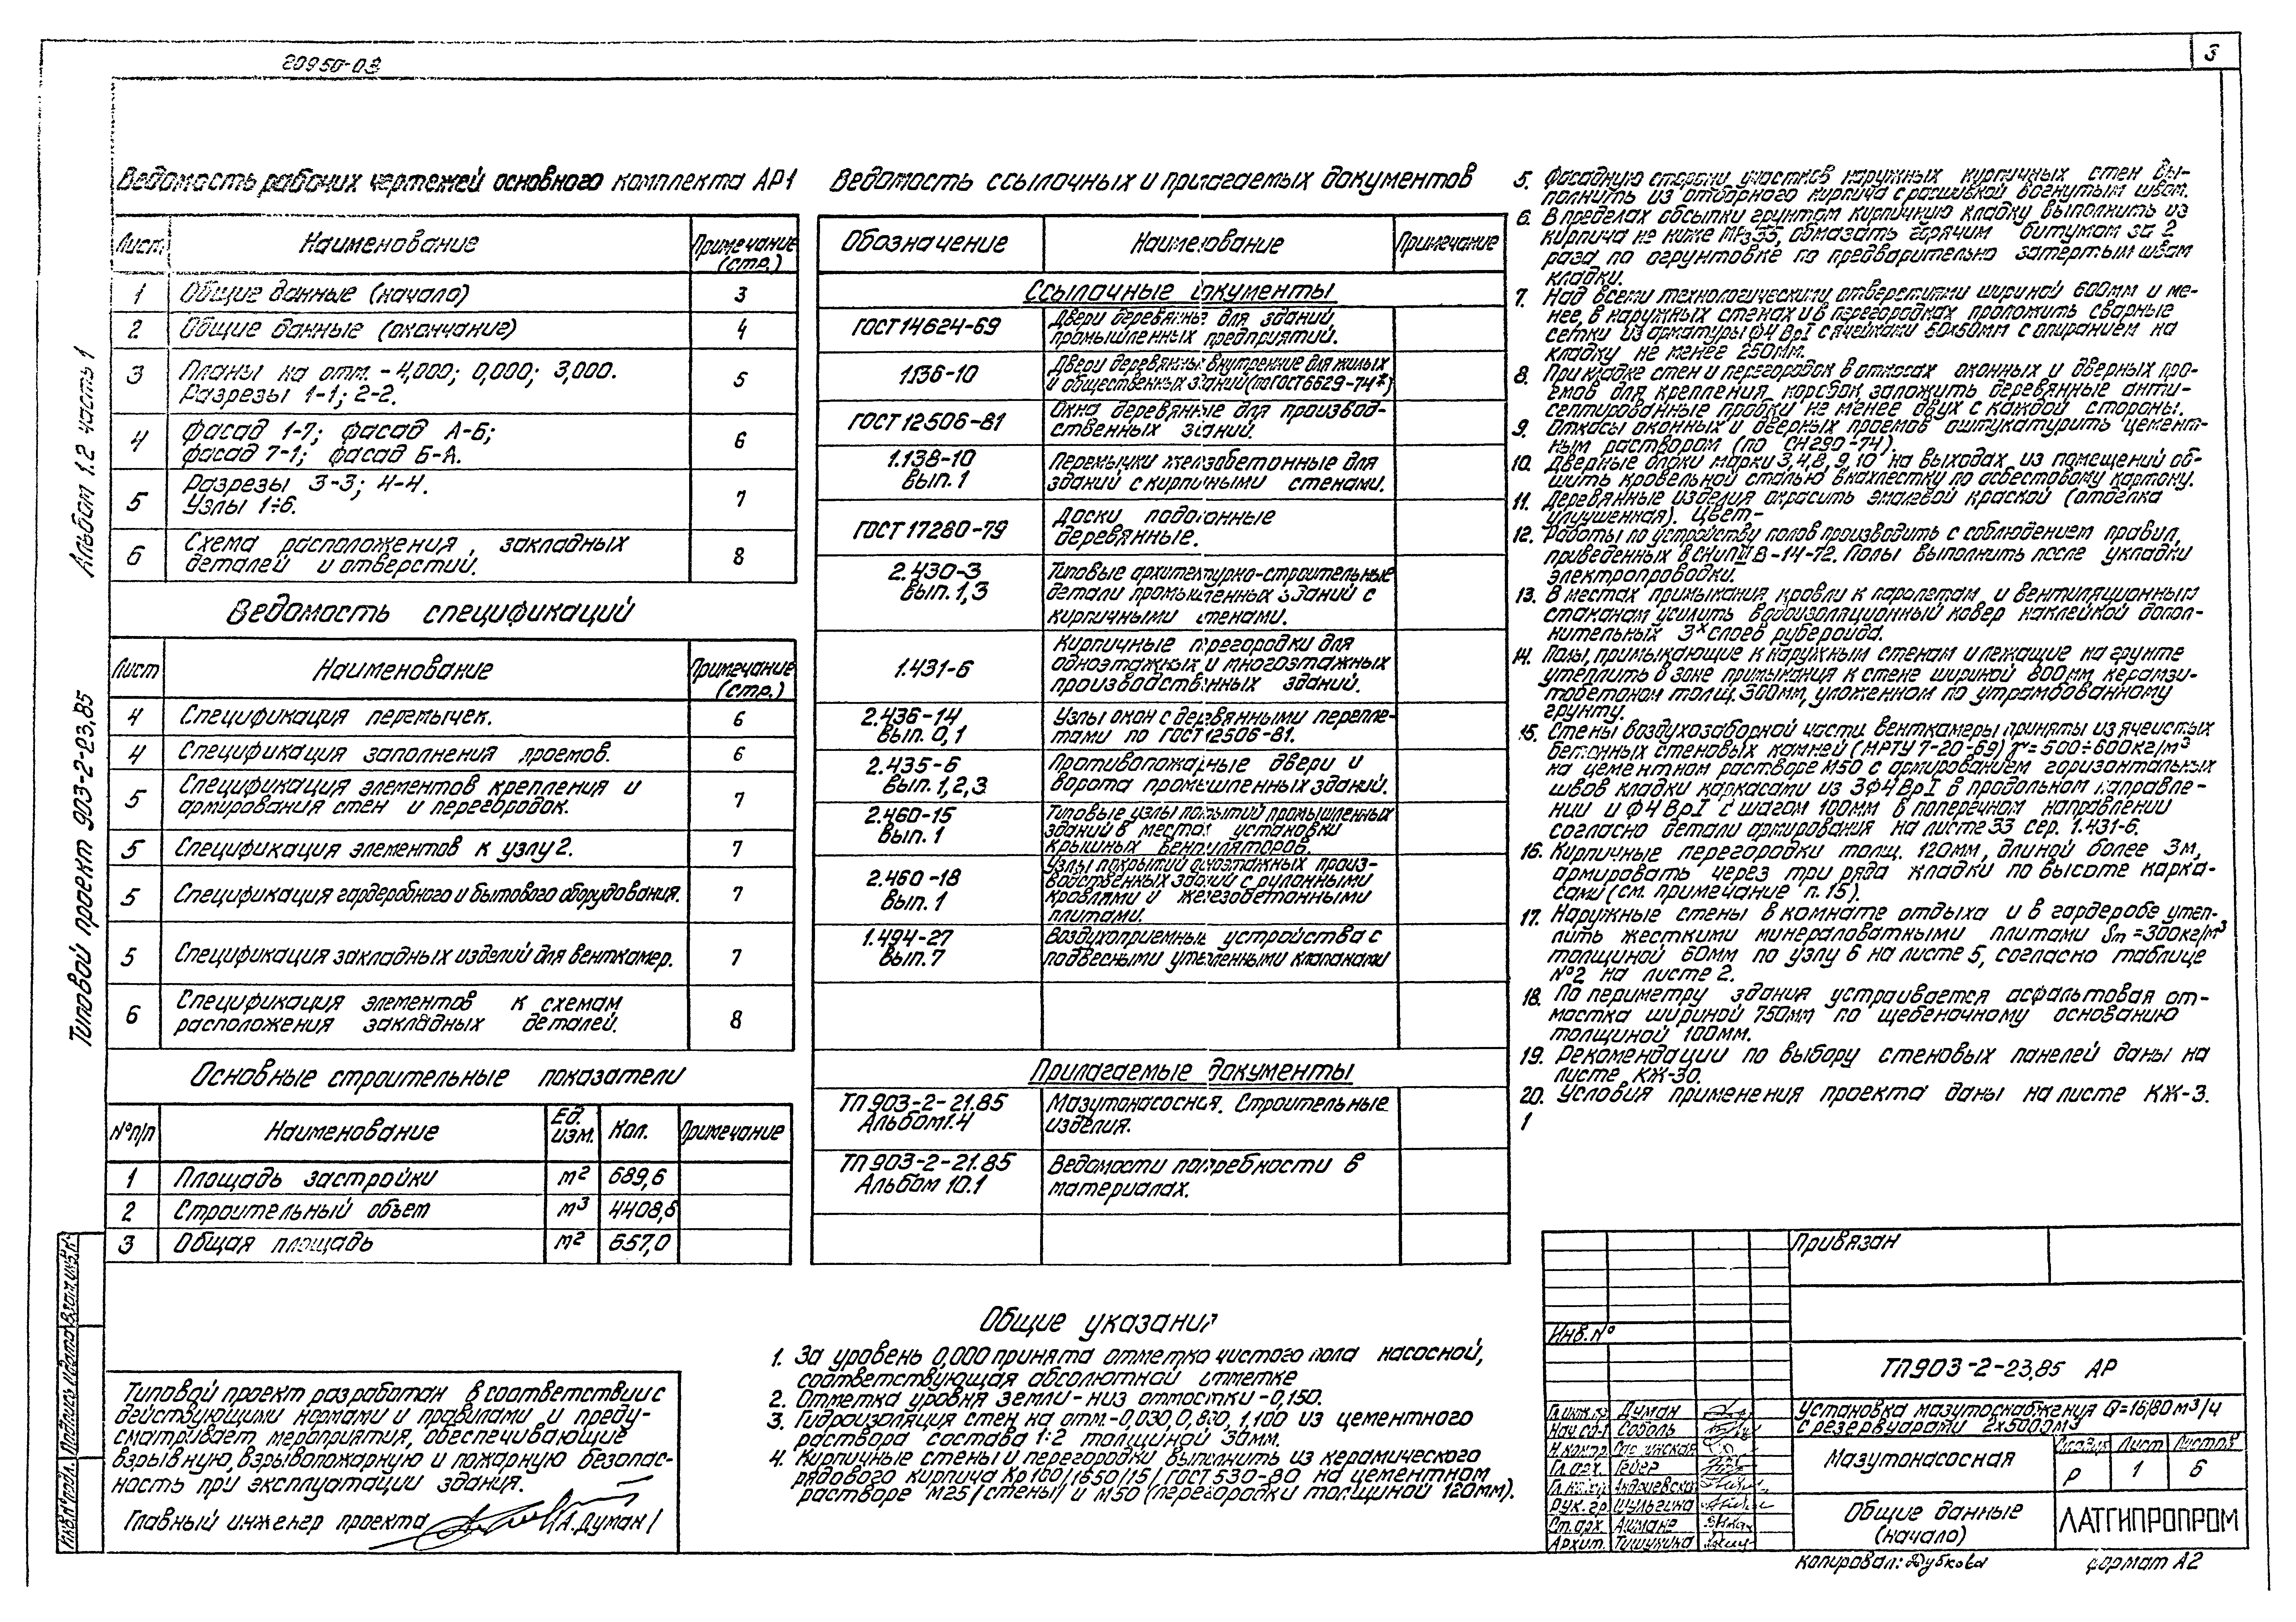 20950-03
3
Альбом 1.2 часть 1
Типовой проект 903-2-23.85
Ведомость рабочих чертежей основного комплекта АР1
Лист Наименование Примечание (стр.)
1 Общие данные (начало) 3
2 Общие данные (окончание) 4
3 Планы на отм. -4,000; 0,000; 3,000. 5
Разрезы 1-1; 2-2.
4 Фасад 1-7; фасад А-Б; 6
фасад 7-1; фасад Б-А.
5 Разрезы 3-3; 4-4. 7
Узлы 1÷6.
6 Схема расположения, закладных 8
деталей и отверстий.
Ведомость спецификаций
Лист Наименование Примечание (стр.)
4 Спецификация перемычек. 6
4 Спецификация заполнения проемов. 6
5 Спецификация элементов крепления и 7
армирования стен и перегородок.
5 Спецификация элементов к узлу 2. 7
5 Спецификация гардеробного и бытового оборудования. 7
5 Спецификация закладных изделий для венткамер. 7
6 Спецификация элементов к схемам 8
расположения закладных деталей.
Основные строительные показатели
№п/п Наименование Ед. изм. Кол. Примечание
1 Площадь застройки м² 689,6
2 Строительный объем м³ 4408,6
3 Общая площадь м² 657,0
Типовой проект разработан в соответствии с
действующими нормами и правилами и преду-
сматривает мероприятия, обеспечивающие
взрывную, взрывопожарную и пожарную безопас-
ность при эксплуатации здания.
Главный инженер проекта /А. Думан/
Ведомость ссылочных и прилагаемых документов
Обозначение Наименование Примечание
Ссылочные документы
ГОСТ 14624-69 Двери деревянные для зданий
промышленных предприятий.
1.136-10 Двери деревянные внутренние для жилых
и общественных зданий (по ГОСТ 6629-74*)
ГОСТ 12506-81 Окна деревянные для производ-
ственных зданий.
1.138-10 Перемычки железобетонные для
вып. 1 зданий с кирпичными стенами.
ГОСТ 17280-79 Доски подоконные
деревянные.
2.430-3 Типовые архитектурно-строительные
вып. 1,3 детали промышленных зданий с
кирпичными стенами.
1.431-6 Кирпичные перегородки для
одноэтажных и многоэтажных
производственных зданий.
2.436-14 Узлы окон с деревянными перепле-
вып. 0,1 тами по ГОСТ 12506-81.
2.435-6 Противопожарные двери и
вып. 1,2,3 ворота промышленных зданий.
2.460-15 Типовые узлы покрытий промышленных
вып. 1 зданий в местах установки
крышных вентиляторов.
2.460-18 Узлы покрытий одноэтажных произ-
вып. 1 водственных зданий с рулонными
кровлями и железобетонными
плитами.
1.494-27 Воздухоприемные устройства с
вып. 7 подвесными утепленными клапанами
Прилагаемые документы
ТП 903-2-21.85 Мазутонасосная. Строительные
Альбом 1.4 изделия.
ТП 903-2-21.85 Ведомости потребности в
Альбом 10.1 материалах.
Общие указания
1. За уровень 0,000 принята отметка чистого пола насосной,
соответствующая абсолютной отметке
2. Отметка уровня земли - низ отмостки -0,150.
3. Гидроизоляция стен на отм. -0,030, 0,820, 1,100 из цементного
раствора состава 1:2 толщиной 30мм.
4. Кирпичные стены и перегородки выполнить из керамического
рядового кирпича Кр100/1650/15/ГОСТ 530-80 на цементном
растворе М25 /стены/ и М50 (перегородки толщиной 120мм).
5. Фасадную сторону участков наружных кирпичных стен вы-
полнить из отборного кирпича с расшивкой вогнутым швом.
6. В пределах обсыпки грунтом кирпичную кладку выполнить из
кирпича не ниже МРз35, обмазать горячим битумом за 2
раза по огрунтовке по предварительно затертым швам
кладки.
7. Над всеми технологическими отверстиями шириной 600мм и ме-
нее, в наружных стенах и в перегородках проложить сварные
сетки из арматуры ф4 ВрI с ячейками 50х50мм с опиранием на
кладку не менее 250мм.
8. При кладке стен и перегородок в откосах оконных и дверных про-
емов для крепления коробок заложить деревянные анти-
септированные пробки не менее двух с каждой стороны.
9. Откосы оконных и дверных проемов оштукатурить цемент-
ным раствором (по СН290-74).
10. Дверные блоки марки 3,4,8,9,10 на выходах из помещений об-
шить кровельной сталью внахлестку по асбестовому картону.
11. Деревянные изделия окрасить эмалевой краской (отделка
улучшенная). Цвет-
12. Работы по устройству полов производить с соблюдением правил,
приведенных в СНиП III В-14-72. Полы выполнить после укладки
электропроводки.
13. В местах примыкания кровли к парапетам и вентиляционным
стаканам усилить водоизоляционный ковер наклейкой допол-
нительных 3х слоев рубероида.
14. Полы, примыкающие к наружным стенам и лежащие на грунте
утеплить в зоне примыкания к стене шириной 800мм керамзи-
тобетоном толщ. 300мм, уложенном по утрамбованному
грунту.
15. Стены воздухозаборной части венткамеры приняты из ячеистых
бетонных стеновых камней (МРТУ 7-20-69) γ=500÷600кг/м³
на цементном растворе М50 с армированием горизонтальных
швов кладки каркасами из 3ф4ВрI в продольном направле-
нии и ф4ВрI с шагом 100мм в поперечном направлении
согласно детали армирования на листе 33 сер. 1.431-6.
16. Кирпичные перегородки толщ. 120мм, длиной более 3м,
армировать через три ряда кладки по высоте карка-
сами (см. примечание п.15).
17. Наружные стены в комнате отдыха и в гардеробе утеп-
лить жесткими минераловатными плитами δm=300кг/м³
толщиной 60мм по узлу 6 на листе 5, согласно таблице
№2 на листе 2.
18. По периметру здания устраивается асфальтовая от-
мостка шириной 750мм по щебеночному основанию
толщиной 100мм.
19. Рекомендации по выбору стеновых панелей даны на
листе КЖ-30.
20. Условия применения проекта даны на листе КЖ-3.
1
Привязан
Инв.№
ТП903-2-23.85 АР
Гл.инж.пр Думан
Нач.со-1 Соболь
Н.контр.
Гл.арх. Гейер
Рук.гр. Шульгина
Ст.арх. Ашмане
Архит. Тишунина
Установка мазутоснабжения Q=16/80м³/ч
с резервуарами 2х5000м³
Мазутонасосная
Стадия Лист Листов
Р 1 6
Общие данные
(начало)
ЛАТГИПРОПРОМ
Копировал: Дубкова формат А2
Инв.№ подл. Подпись и дата Взам.инв.№